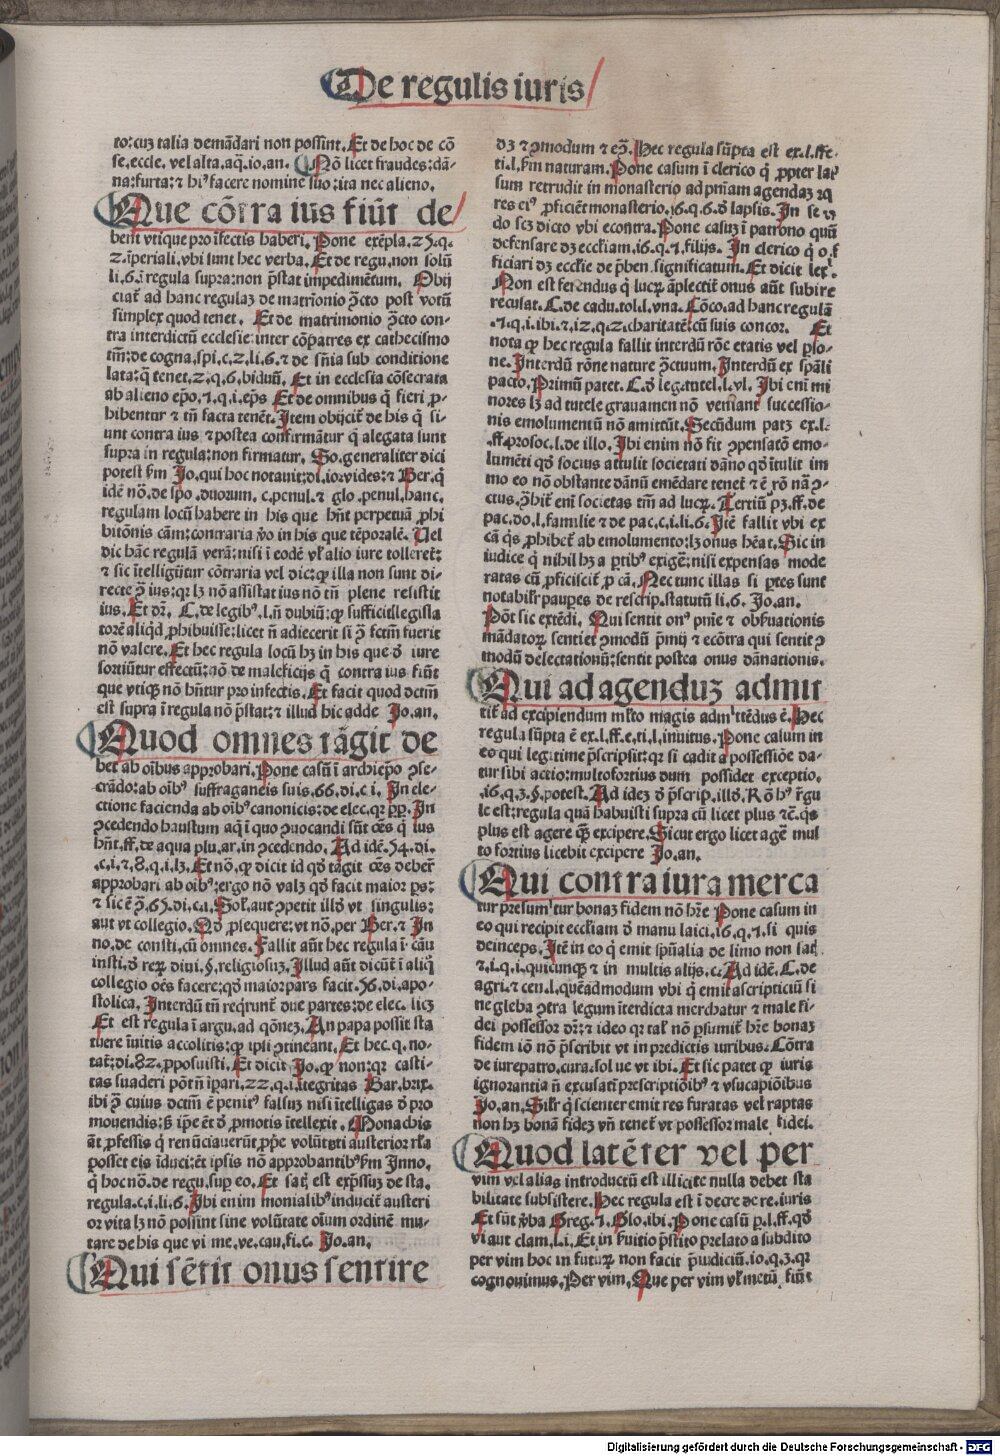 De regulis iuris
to: cuz talia demādari non possint. Et de hoc de cō
se. eccle. vel alta. aq. io. an. Nō licet fraudes: dā-
na: furta: ⁊ hiꝰ facere nomine suo: ita nec alieno.
Que cōtra ius fiūt de
bent vtique pro īfectis haberi. Pone exēpla. 25. q.
2. īperiali. vbi sunt hec verba. Et de regu. non solū
li. 6. ī regula supra: non p̄stat impedimētum. Obij
ciat᷑ ad hanc regulaz de matrīonio ꝯcto post votū
simplex quod tenet. Et de matrimonio ꝯcto con-
tra interdictū ecclesie: inter cōpatres ex cathecismo
tm̄: de cogna. spi. c. 2. li. 6. ⁊ de sn̄ia sub conditione
lata: q̄ tenet. 2. q. 6. biduū. Et in ecclesia cōsecrata
ab alieno epo. 7. q. i. eps Et de omnibus q̄ fieri ꝓ-
hibentur ⁊ tn̄ facta tenēt. Item obijcit᷑ de his q̄ si-
unt contra ius ⁊ postea confirmāt᷑ q̄ alegata sunt
supra in regula: non firmatur. So. generaliter dici
potest ẜm Jo. qui hoc notauit: di. io. vides: ⁊ Ber. q̄
idē nō. de spo. duorum. c. penul. ⁊ glo. penul. hanc.
regulam locū habere in his que hn̄t perpetuā ꝓhi
bitōnis cām: contraria ꝟo in his que tēporale. Uel
dic hāc regulā verā: nisi ī eodē vel alio iure tolleret᷑:
⁊ sic ītelligūtur cōtraria vel dic: ꝙ illa non sunt di-
recte ꝯ ius: qꝛ lꝫ nō assistat ius nō tn̄ plene resistit
ius. Et dꝛ. C. de legibꝰ. l. n̄ dubiū: ꝙ sufficit legisla
torē aliqd ꝓhibuisse: licet n̄ adiecerit si ꝯ fctm̄ fuerit
nō valere. Et hec regula locū hꝫ in his que d̓ iure
sortiūtur effectū: nō de maleficijs q̄ contra ius fiūt
que vtiqꝫ nō hn̄tur pro infectis. Et facit quod dctm̄
est supra ī regula nō p̄stat: ⁊ illud hic adde Jo. an.
Quod omnes tāgit de
bet ab oībus approbari. Pone casū ī archiepo ꝯse-
crādo: ab oībꝰ suffraganeis suis. 66. di. c i. In ele-
ctione facienda ab oībꝰ canonicis: de elec. qꝛ ꝓp. In
ꝯcedendo haustum aq̄ ī quo ꝯuocandi sūt oēs q̄ ius
hn̄t. ff. de aqua plu. ar. in ꝯcedendo. Ad idē. 54. di.
.c. i. ⁊. 8. q. i. lꝫ. Et nō. ꝙ dicit id qd̓ tāgit oēs debet᷑
approbari ab oibꝰ: ergo nō valꝫ qd̓ facit maior ps:
⁊ sic ē ꝯ. 65. di. c. i. Sol. aut ꝯpetit illd̓ vt singulis:
aut vt collegio. Qd̓ ꝓsequere: vt nō. per Ber. ⁊ In
no. de consti. cū omnes. Fallit aūt hec regula ī cāu
insti. d̓ reꝝ diui. §. religiosuꝫ. Illud aūt dicūt ī aliq̄
collegio oēs facere: qd̓ maior pars facit. 56. di. apo-
stolica. Interdū tn̄ reqrunt᷑ due partes: de elec. licꝫ
Et est regula ī argu. ad qōneꝫ. An papa possit sta
tuere īuitis accolitis: ꝙ ipsi ꝯtineant. Et hec. q. no-
tat᷑: di. 82. ꝓposuisti. Et dicit Jo. ꝙ non: qꝛ casti-
tas suaderi pōt n̄ īpari. 22. q. i. ītegritas Bar. brix.
ibi ꝯ cuius dctm̄ ē penitꝰ falsuꝫ nisi ītelligas d̓ pro
mouendis: ẜ ipe ēt d̓ ꝓmotis ītellexit. Monachis
āt ꝓfessis q̄ renūciauerūt ꝓpe volūtati austerior rl̓a
posset eis īduci: ēt ipsis nō approbantibꝰ ẜm Inno.
q̄ hoc nō. de regu. sup eo. Et satꝫ est expssuꝫ de sta.
regula. c. i. li. 6. Ibi enim monialibꝰ inducit᷑ austeri
or vita lꝫ nō possint sine volūtate oīum ordinē mu-
tare de his que vi me. ve. cau. fi. c. Jo. an.
Qui sētit onus sentire
dꝫ ⁊ ꝯmodum ⁊ eꝯ. Hec regula sūpta est ex. l. ff. e.
ti. l. ẜm naturam. Pone casum ī clerico q̄ ꝓpter lap
sum retrudit in monasterio ad pn̄iam agendaz ⁊ q
res eiꝰ ꝓficiēt monasterio. 16. q. 6. d̓ lapsis. In se cū
do scꝫ dicto vbi econtra. Pone casuꝫ ī patrono quū
defensare dꝫ eccl̓iam. 16. q. 7. filijs. In clerico q̄ o. f
ficiari dꝫ eccl̓ie de p̄ben. significatum. Et dicit lex.
Non est ferendus q̄ lucꝝ āplectit᷑ onus aūt subire
recusat. C. de cadu. tol. l. vna. Cōco. ad hanc regulā
.7. q. i. ibi. ⁊. 12. q. 2. charitatē: cū suis concor. Et
nota ꝙ hec regula fallit interdū rōe etatis vel pso-
ne. Interdū rōne nature ꝯctuum. Interdū ex spāli
pacto. Primū patet. C. d̓ leg. tutel. l. vl. Ibi enī mi
nores lꝫ ad tutele grauamen nō veniant successio-
nis emolumentū nō amittūt. Secūdum patꝫ ex. l.
.ff. pro soc. l. de illo. Ibi enim nō fit ꝯpensatō emo-
lumēti qd̓ socius attulit societati dāno qd̓ ītulit im
mo eo nō obstante dānū emēdare tenet᷑ ⁊ ē rō nā ꝯ-
ctus. ꝯhit᷑ enī societas tm̄ ad lucꝝ. Tertiū pꝫ. ff. de
pac. do. l. familie ⁊ de pac. c. i. li. 6. Itē fallit vbi ex
cā qs ꝓhibet᷑ ab emolumento: lꝫ onus hēat. Sic in
iudice q̄ nihil hꝫ a ptibꝰ exigē: nisi expensas mode
ratas cū ꝓficiscit᷑ ꝓ cā. Nec tunc illas si ptes sunt
notabilr̄ paupes de rescrip. statutū li. 6. Jo. an.
Pōt sic extēdi. Qui sentit onꝰ pn̄ie ⁊ obẜuationis
mādatoꝝ sentiet ꝯmodū pmij ⁊ ecōtra qui sentit ꝯ
modū delectationū: sentit postea onus dānationis.
Qui ad agenduz admit
tit᷑ ad excipiendum ml̓to magis admittēdus ē. Hec
regula sūpta ē ex. l. ff. e. ti. l. inuitus. Pone casum in
eo qui legitime p̄scripsit: qꝛ si cadit a possessiōe da-
tur sibi actio: multofortius dum possidet exceptio.
.16. q. 3. §. potest. Ad ideꝫ d̓ p̄scrip. illd̓. Rō hꝰ r̄gu
le est: regula quā habuisti supra cū licet plus ⁊c̄. qs
plus est agere qꝫ excipere. Sicut ergo licet agē mul
to fortius licebit excipere Jo. an.
Qui contra iura merca
tur presumitur bonaꝫ fidem nō hr̄e Pone casum in
eo qui recipit eccl̓iam d̓ manu laici. 16. q. 7. si quis
deinceps. Itē in eo q̄ emit spūalia de simo non sat̄
.⁊. i. q. i. quicunqꝫ ⁊ in multis alijs. c. Ad idē. C. de
agri. ⁊ cen. l. quēadmodum vbi q̄ emit ascripticiū si
ne gleba ꝯtra legum īterdicta mercatur ⁊ male fi-
dei possessor dꝛ: ⁊ ideo qꝛ tal̓ nō p̄sumit᷑ hr̄e bonaꝫ
fidem iō nō p̄scribit vt in predictis iuribus. Cōtra
de iurepatro. cura. sol ue vt ibi. Et sic patet ꝙ iuris
ignorantia n̄ excusat ī prescriptiōibꝰ ⁊ vsucapiōibus
Jo. an. Silr̄ q̄ scienter emit res furatas vel raptas
non hꝫ bonā fideꝫ vn̄ tenet᷑ vt possessor male fidei.
Quod latēter vel per
vim vel alias introductū est illicite nulla debet sta
bilitate subsistere. Hec regula est ī decre de re. iuris
Et sūt ꝟba Greg. 7. Glo. ibi. Pone casū p. l. ff. qd̓
vi aut clam. l. i. Et in ẜuitio p̄stito prelato a subdito
per vim hoc in futuꝝ non facit p̄iudiciū. 10. q. 3. qꝛ
cognouimus. Per vim. Que per vim vel metū fiūt
Digitalisierung gefördert durch die Deutsche Forschungsgemeinschaft - DFG